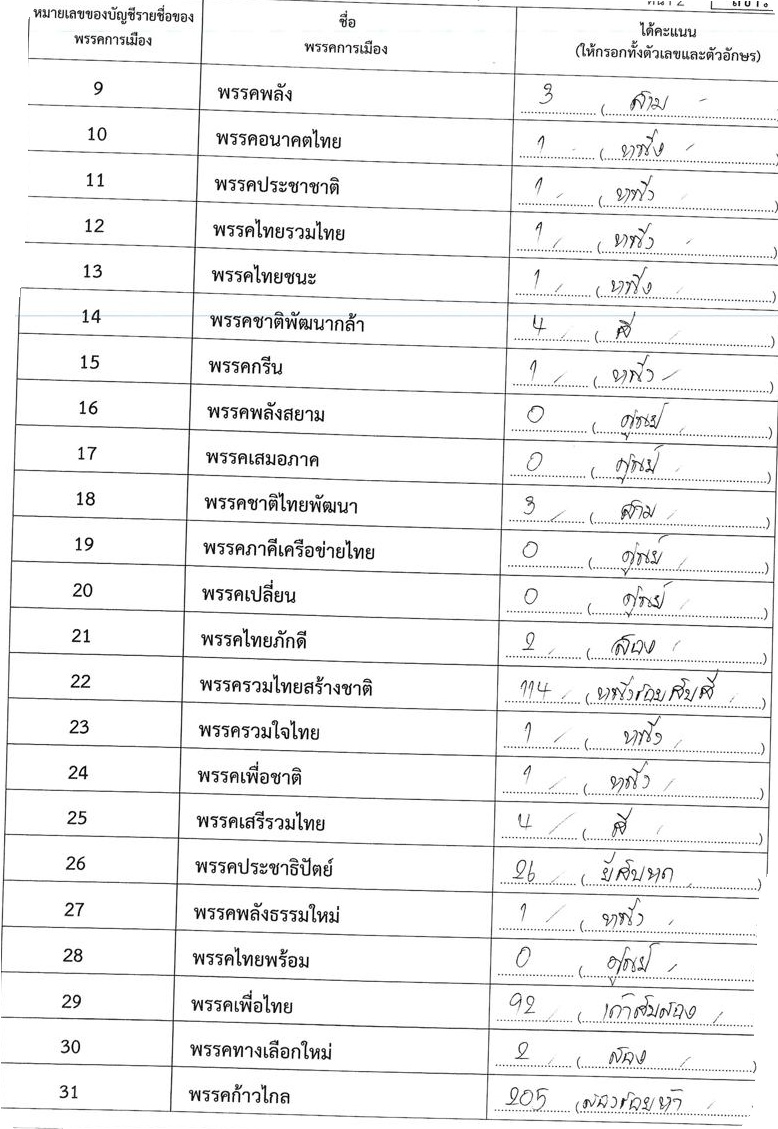 หมายเลขของบัญชีรายชื่อของ
พรรคการเมือง
ชื่อ
พรรคการเมือง
ได้คะแนน
(ให้กรอกทั้งตัวเลขและตัวอักษร)
9 พรรคพลัง 3 (สาม)
10 พรรคอนาคตไทย 1 (หนึ่ง)
11 พรรคประชาชาติ 1 (หนึ่ง)
12 พรรคไทยรวมไทย 1 (หนึ่ง)
13 พรรคไทยชนะ 1 (หนึ่ง)
14 พรรคชาติพัฒนากล้า 4 (สี่)
15 พรรคกรีน 1 (หนึ่ง)
16 พรรคพลังสยาม 0 (ศูนย์)
17 พรรคเสมอภาค 0 (ศูนย์)
18 พรรคชาติไทยพัฒนา 3 (สาม)
19 พรรคภาคีเครือข่ายไทย 0 (ศูนย์)
20 พรรคเปลี่ยน 0 (ศูนย์)
21 พรรคไทยภักดี 2 (สอง)
22 พรรครวมไทยสร้างชาติ 114 (หนึ่งร้อยสิบสี่)
23 พรรครวมใจไทย 1 (หนึ่ง)
24 พรรคเพื่อชาติ 1 (หนึ่ง)
25 พรรคเสรีรวมไทย 4 (สี่)
26 พรรคประชาธิปัตย์ 26 (ยี่สิบหก)
27 พรรคพลังธรรมใหม่ 1 (หนึ่ง)
28 พรรคไทยพร้อม 0 (ศูนย์)
29 พรรคเพื่อไทย 92 (เก้าสิบสอง)
30 พรรคทางเลือกใหม่ 2 (สอง)
31 พรรคก้าวไกล 205 (สองร้อยห้า)